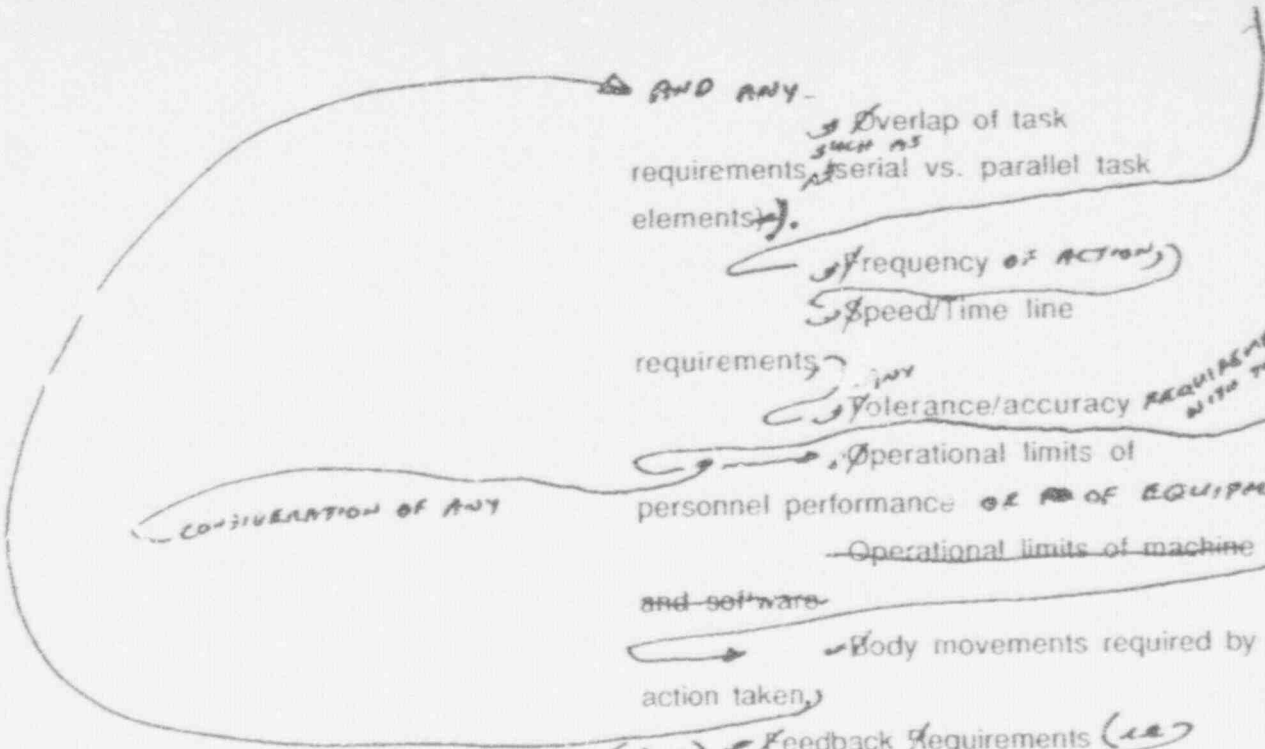 AND ANY
Overlap of task
SUCH AS
requirements (serial vs. parallel task
elements).
Frequency OF ACTION,
Speed/Time line
requirements,
ANY
Tolerance/accuracy
WITH
Operational limits of
CONSIDERATION OF ANY
personnel performance OR OF
Operational limits of machine
and software
Body movements required by
action taken,
Feedback Requirements (i.e.